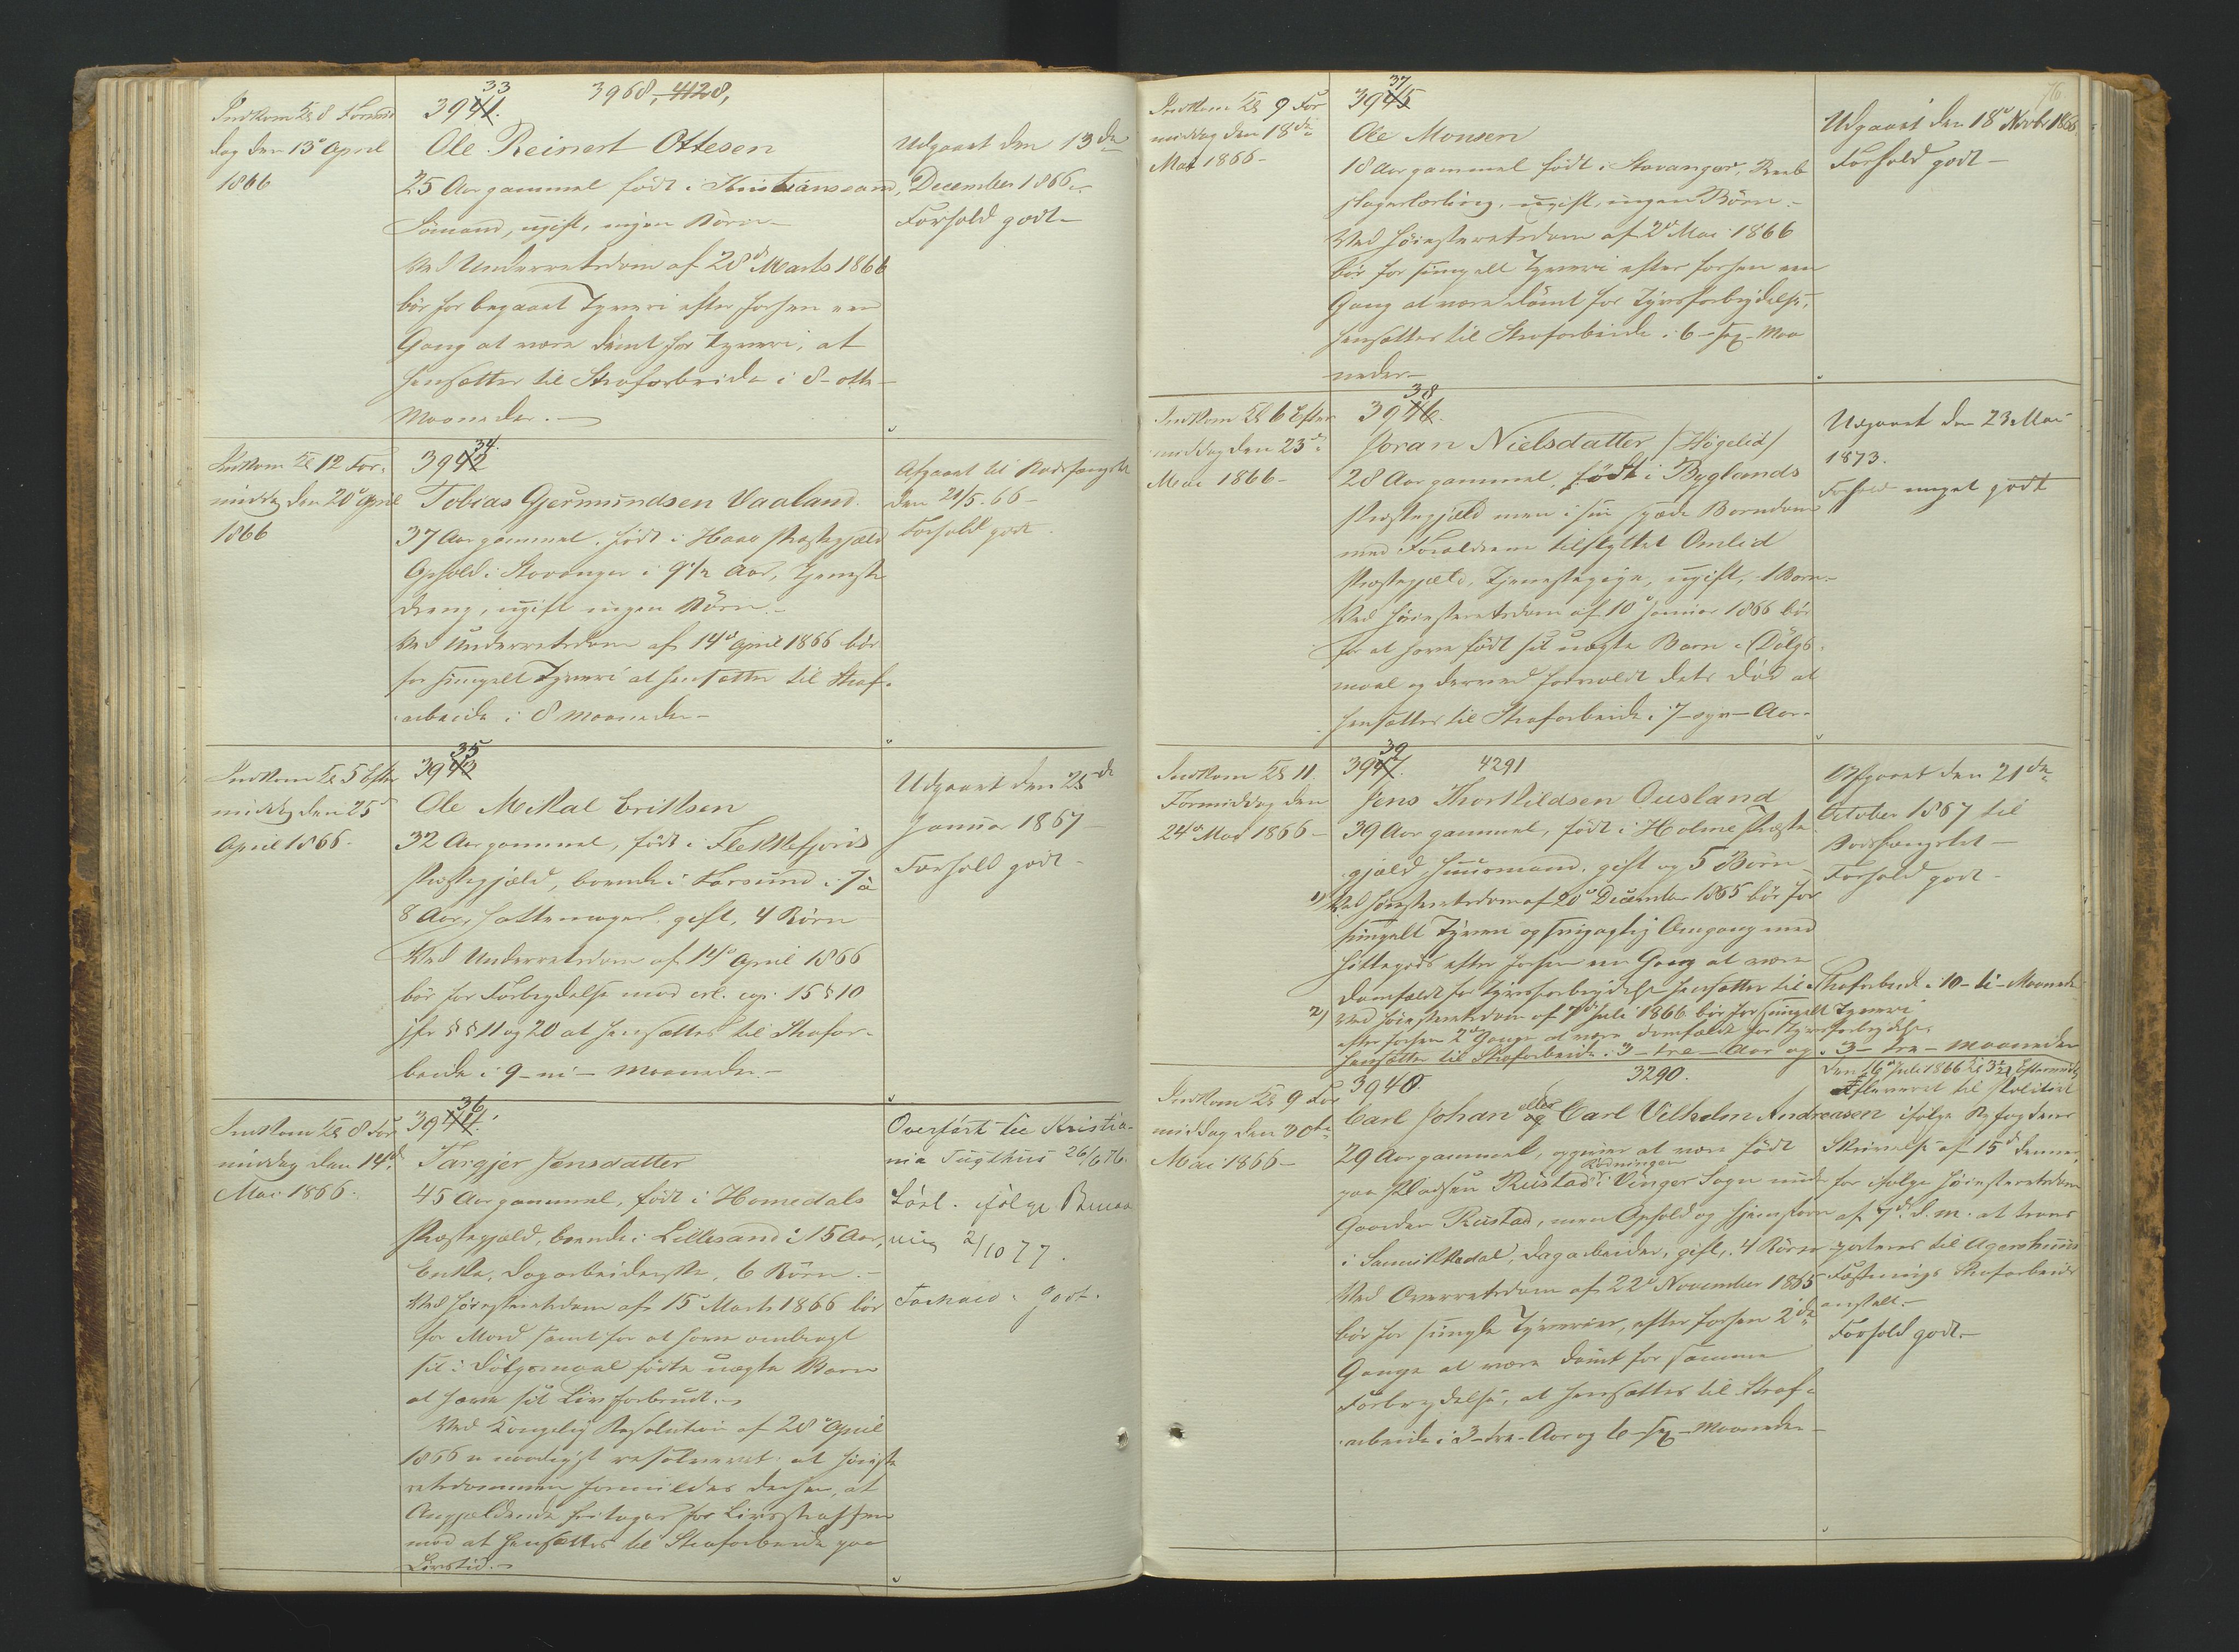 3968, 4128,
Indkom Kl 8 Formid
dag den 13de April
1866
33
3941.
Ole Reinert Ottesen
25 Aar gammel født i Kristianssand,
Sømand, ugift, ingen Børn
Ved Underretsdom af 28de Marts 1866
bør for begaaet Tyveri efter forhen een
Gang at være dømt for Tyveri, at
hensættes til Strafarbeide i 8 - otte
Maaneder. -
Udgaaet den 13de
December 1866.
Forhold godt -
Indkom Kl 12 For-
middag den 20de April
1866
34
3942
Tobias Gjermundsen Vaaland.
37 Aar gammel, født i Haae Præstegjæld
Ophold i Stavanger i 9 1/2 Aar, Tjeneste-
dreng, ugift ingen Børn. -
Ved Underretsdom af 14de April 1866 bør
for simpelt Tyveri at hensættes til Straf-
arbeide i 8 Maaneder -
Afgaaet til Bodsfængslet
den 21/5. 66 -
Forhold godt.
Indkom Kl 5 Efter
middag den 25de
April 1866.
35
3943
Ole Mikal Eriksen
32 Aar gammel, født i Flekkefjords
Præstegjæld, boende i Farsund i 7 à
8 Aar, Hattemager, gift, 4 Børn
Ved Underretsdom af 14de April 1866
bør for Forbrydelse mod crl. cap. 15 § 10
jfr §§ 11 og 20 at hensættes til Strafar-
beide i 9 - ni - Maaneder. -
Udgaaet den 25de
Januar 1867 -
Forhold godt -
Indkom Kl 8 For
middag den 14de
Mai 1866.
36
3944.
Targjer Jensdatter
45 Aar gammel, født i Homedals
Præstegjæld, boende i Lillesand i 15 Aar,
Enke, Dagarbeiderske, 6 Børn. -
Ved Høiesteretsdom af 15de Marts 1866 bør
for Mord samt for at have ombragt
sit i Dølgsmaal fødte uægte Barn
at have sit Liv forbrudt. -
Ved Kongelig Resolution af 28de April
1866 er naadigst resolveret: at Høieste-
retsdommen formildes derhen, at
Angjældende fritages for Livsstraffen
mod at hensættes til Strafarbeide paa
Livstid. -
Overført til Kristia-
nia Tugthus 26/6 76.
Løsl. ifølge Benaad
ning 2/10 77.
Forhold: Godt.
76
Indkom Kl 9 For
middag den 18de
Mai 1866 -
37
3945
Ole Monsen
18 Aar gammel født i Stavanger, Reeb
slagerlærling, ugift, ingen Børn. -
Ved Høiesteretsdom af 2de Mai 1866
bør for simpelt Tyveri efter forhen een
Gang at være dømt for Tyvsforbrydelse,
hensættes til Strafarbeide i 6 - sex - Maa
neder -
Udgaaet den 18de Novbr 1866
Forhold godt -
Indkom Kl 6 Efter
middag den 23de
Mai 1866 -
38
3946.
Joran Nielsdatter /Högelid/
28 Aar gammel, født i Byglands
Præstegjæld men i sin spæde Barndom
med Forældrene tilflyttet Omlid
Præstegjæld, Tjenestepige, ugift, 1 Barn -
Ved Høiesteretsdom af 10de Januar 1866 bør
for at have født sit uægte Barn i Dølgs-
maal og derved forvoldt dets Død at
hensættes til Strafarbeide i 7 - syv - Aar -
Udgaaet den 23 Mai
1873.
Forhold meget godt
Indkom Kl 11
Formiddag den
24de Mai 1866 -
39
3947. 4291
Jens Thorkildsen Ousland
39 Aar gammel, født i Holme Præste
gjæld, Huusmand, gift og 5 Børn
1) Ved Høiesteretsdom af 20de December 1865 bør for
simpelt Tyveri og svigagtig Omgang med
Hittegods efter forhen een Gang at være
domfældt for Tyvsforbrydelse hensættes til Strafarbeide i 10 - ti - Maaneder
2) Ved Høiesteretsdom af 7de Juli 1866 bør for simpelt Tyveri
efter forhen 2de Gange at være domfældt for Tyvsforbrydelse
hensættes til Strafarbeide i 3 - tre - Aar og 3 - tre - Maaneder
Afgaaet den 21de
October 1867 til
Bodsfængslet -
Forhold godt -
Indkom Kl 9 For
middag den 30te
Mai 1866 -
3940. 3290.
Carl Johan eller og Carl Vilhelm Andreasen
29 Aar gammel, opgiver at være født
paa Pladsen Rustad Rødningen i Vinger Sogn under
Gaarden Rustad, men Ophold og Hjemstavn
i Sannikedal, Dagarbeider, gift, 4 Børn
Ved Overretsdom af 22de November 1865
bør for simple Tyverier, efter forhen 2de
Gange at være dømt for samme
Forbrydelse, at hensættes til Straf-
arbeide i 3 - tre - Aar og 6 - sex - Maaneder -
Den 16de Juli 1866 Kl 3 1/2 Eftermiddag
afleveret til Politiet
ifølge Byfogdens
Skrivelse af 15de dennes,
for ifølge Høiesteretsdom
af 7de d. m. at trans
porteres til Agershuus
Fæstnings Strafarbeids
anstalt. -
Forhold godt. -